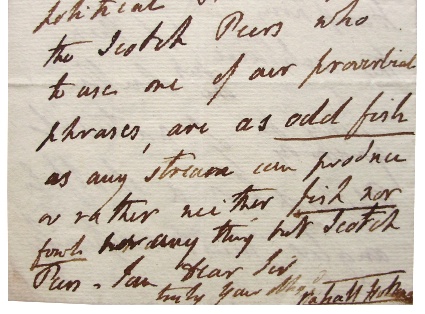 political
the Scotch Peers who
to use one of our proverbial
phrases, are as odd fish
as any stream can produce
or rather neither fish nor
fowl nor any thing but Scotch
Peers - I am Dear Sir
truly your